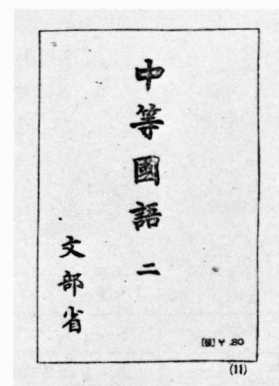 中等國語二
文部省
¥ .80
(11)